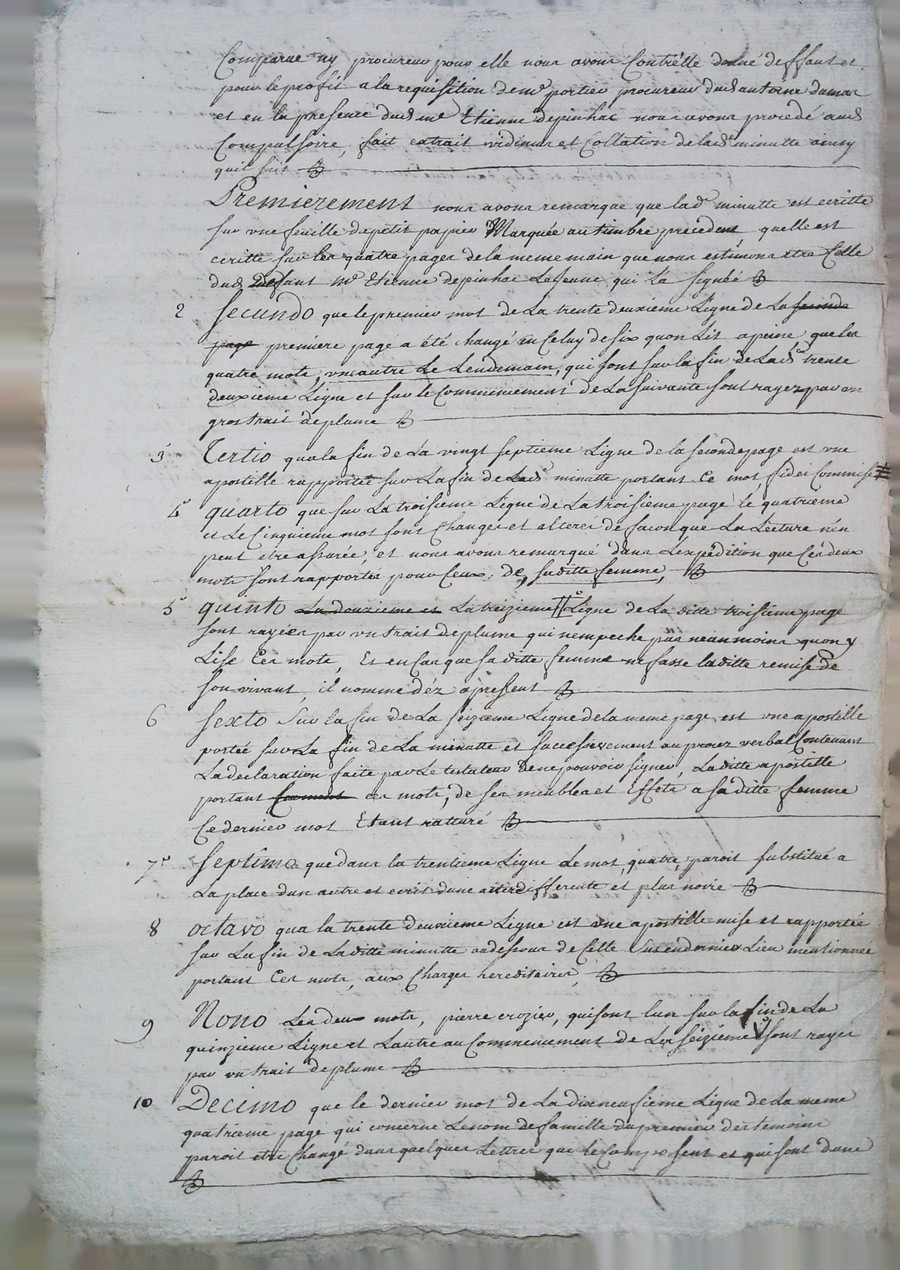 Comparue ny procureur pour elle nous avons Contrelle donné deffaut et
pour le profit a la requisition de me portier procureur dud antoine dumas
et en la presence dud me Etienne depinhac nous avons procedé aud
Compulsoire, fait extrait vidimus et Collation de lade minutte ainsy
quil suit
Premierement nous avons remarque que lade minutte est ecritte
sur une feuille de petit papier Marquée au timbre precedent quelle est
ecritte sur les quatre pages de la meme main que nous estimons etre Celle
dud defunt me Etienne depinhac Le Jeune, qui La signée
2 Secundo que le premier mot de La trente deuxieme Ligne de La seconde
page premiere page a été changé en Celuy de six quon Lit a peine, que les
quatre mots, une autre Le Lendemain, qui sont sur la fin de Lade trente
deuxieme Ligne et sur le Commencement de La suivante sont rayez par un
gros trait de plume
3° Tertio qua la fin de La vingt septieme Ligne de la seconde page est une
apostille rapportée sur La fin de Lade minutte portant Ce mot, fidei Commise #
4° quarto que sur La troisieme Ligne de La troisieme page le quatrieme
et Le Cinquieme mot sont Changes et alterés de facon que La Lecture n'en
peut etre assurée, et nous avons remarqué dans Lexpedition que Ces deux
mots sont rapportés pour Ceux, de, saditte femme,
5° quinto La douzieme et La treizieme # Ligne de La ditte troisieme page
sont rayées par un trait de plume qui nempeche pas neanmoins quon y
Lise Ces mots, Et en Cas que saditte femme ne fasse laditte remise de
son vivant, il nomme dez apresent
6 Sexto Sur la fin de La seizieme Ligne de la meme page, est une apostille
portée sur La fin de La minutte et successivement au procez verbal Contenant
La declaration faite par Le testateur de ne pouvoir signer, Laditte apostille
portant Ces mots, de ses meubles et Effets a saditte femme
Ce dernier mot Etant ratturé
7° Septimo que dans la trentieme Ligne Le mot, quatre, paroit substitué a
La place dun autre et ecrit dune ancre differente et plus noire
8 octavo qua la trente deuxieme Ligne est une apostille mise et rapportée
sur La fin de Laditte minutte audessous de Celle Sus en dernier Lieu mentionnée
portant Ces mots, aux Charges hereditaires,
9 Nono Les deux mots, pierre crozier, qui sont lun sur la fin de La
quinzieme Ligne et Lautre au Commencement de La seizieme sont rayes
par un trait de plume
10 Decimo que le dernier mot de La dixneufieme Ligne de La meme
quatrieme page qui concerne Le nom de famille du premier des temoins
paroit etre Changé dans quelques Lettres que le Composent et qui sont dune